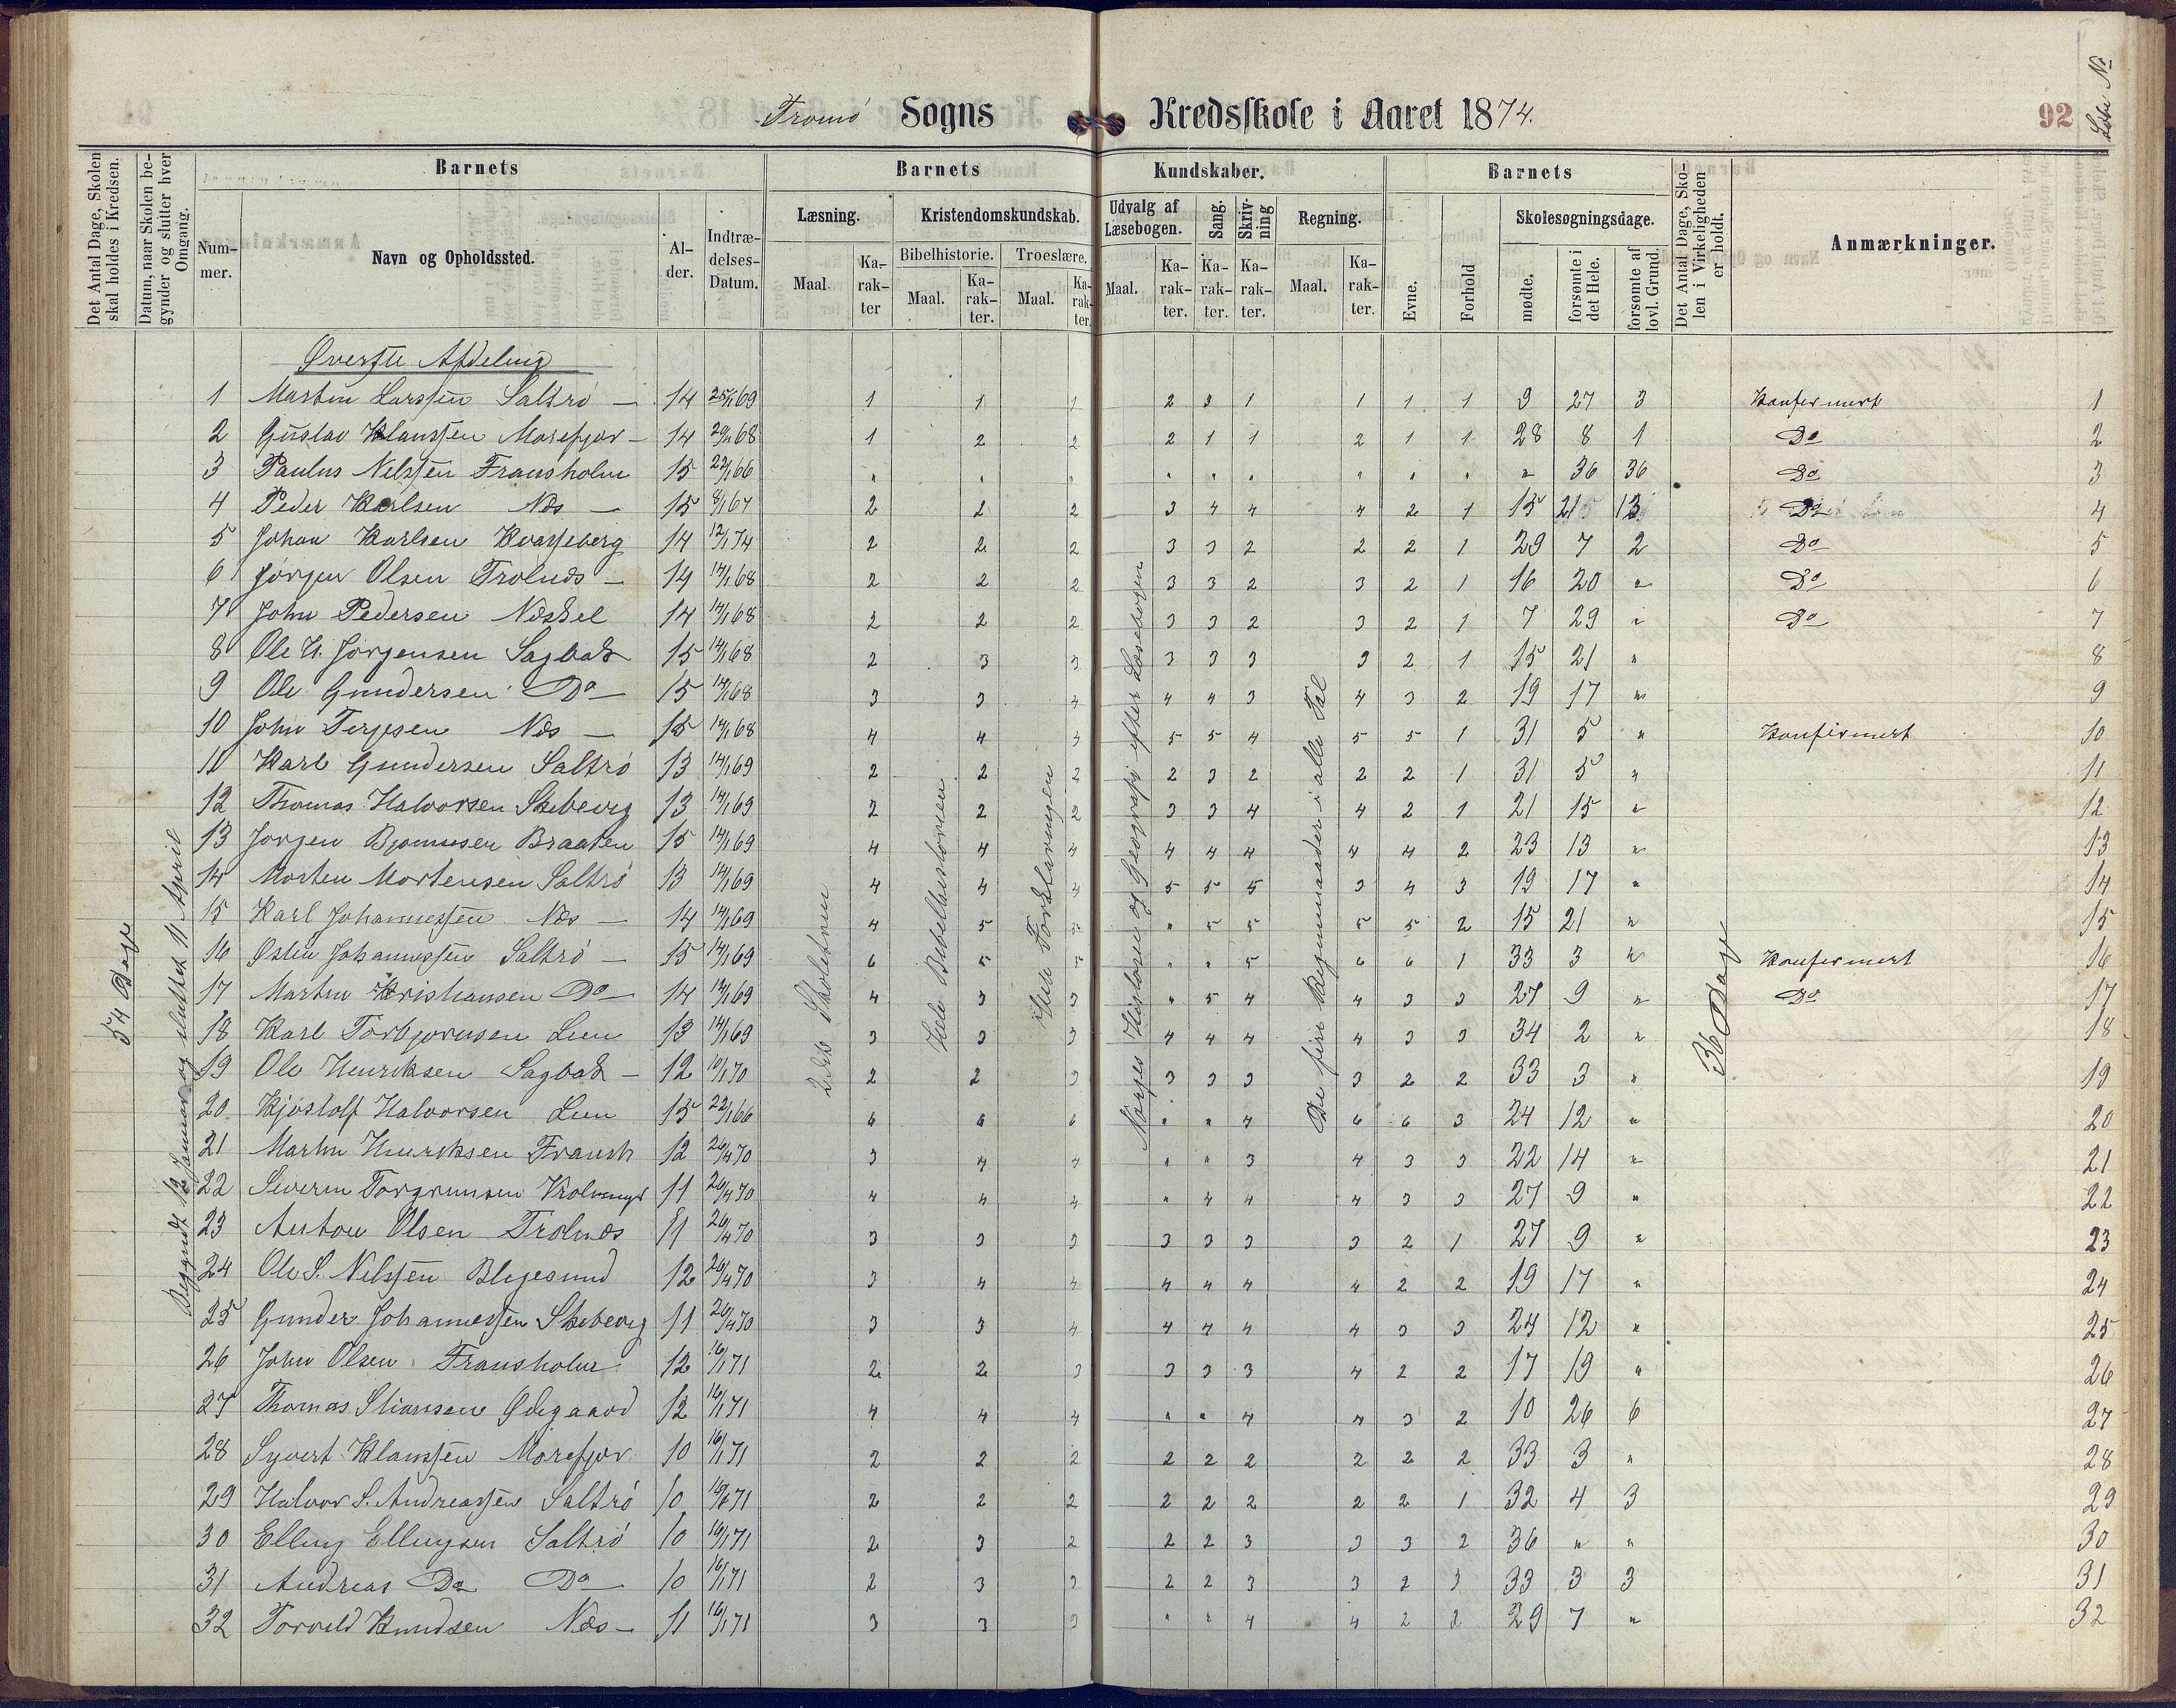 Tromö Sogns Kredsskole i Aaret 1874.
92
Det Antal Dage, Skolen skal holdes i Kredsen.
Datum, naar Skolen begynder og slutter hver Omgang.
Barnets
Barnets Kundskaber.
Barnets
Det Antal Dage, Skolen i Virkeligheden er holdt.
Anmærkninger.
Nummer.
Navn og Opholdssted.
Alder.
Indtrædelses-Datum.
Læsning.
Kristendomskundskab.
Bibelhistorie. Troeslære.
Udvalg af Læsebogen.
Sang.
Skrivning
Regning.
Evne.
Forhold
Skolesøgningsdage.
mødte.
forsømte i det Hele.
forsømte af lovl. Grund.
Maal. Karakter
Maal. Karakter.
Maal. Karakter.
Maal. Karakter.
Karakter.
Karakter.
Maal. Karakter.
54 Dage
Begyndt 12 Januar og sluttet 11 April
Hele Bibelhistorien
Hele Forklaringen
Norges Historie og Geografi efter Læsebogen
De fire Regnemaader i alle Tal
36 Dage
Øverste Afdeling
1 Martin Larssen Saltrö 14 25/1 69 1 1 1 2 3 1 1 1 1 9 27 3 Konfirmert 1
2 Gustav Klaussen Morefjær 14 1 2 2 2 1 1 2 1 1 28 8 1 Do 2
3 Paulus Nilssen Fransholm 15 22/1 66 " " " " " " " " " " 36 36 Do 3
4 Peder Karlsen Næs 15 8/1 67 2 2 2 3 4 4 4 2 1 15 21 13 Do 4
5 Johan Karlsen Kvasseberg 14 12/1 74 2 2 2 3 3 2 2 2 1 29 7 2 Do 5
6 Jörgen Olsen Trolnæs 14 14/1 68 2 2 2 3 3 2 3 2 1 16 20 " Do 6
7 John Pedersen Næskel 14 14/1 68 2 2 2 3 3 2 3 2 1 7 29 " Do 7
8 Ole H. Jörgensen Sagbak 15 14/1 68 2 3 3 3 3 3 3 2 1 15 21 " 8
9 Ole Gundersen Do 15 14/1 68 3 3 4 4 4 3 4 3 2 19 17 " 9
10 John Terjesen Næs 15 14/1 68 4 4 3 5 5 4 5 5 1 31 5 " Konfirmert 10
11 Karl Gundersen Saltrö 13 14/1 69 2 2 2 2 3 2 2 2 1 31 5 " 11
12 Thomas Halvorsen Skeberg 13 14/1 69 2 2 2 3 3 4 4 2 1 21 15 " 12
13 Jörgen Bjørnsen Braaten 15 14/1 69 4 4 4 4 4 4 4 4 2 23 13 " 13
14 Morten Mortensen Saltrö 13 14/1 69 4 4 4 5 5 5 3 4 3 19 17 " 14
15 Karl Johannessen Næs 14 14/1 69 4 5 5 " 5 5 5 5 2 15 21 " 15
16 Østen Johannessen Saltrö 15 14/1 69 6 5 5 " " 5 6 6 1 33 3 " Konfirmert 16
17 Martin Kristiansen Do 14 14/1 69 4 3 3 " 5 4 4 3 3 27 9 " Do 17
18 Karl Torbjørnsen Lun 13 14/1 69 3 3 3 4 4 4 4 3 3 34 2 " 18
19 Ole Henriksen Sagbak 12 10/1 70 2 2 3 3 3 3 3 2 2 33 3 " 19
20 Kjöstolf Halvorsen Lun 15 22/1 66 6 6 6 " " 4 6 6 3 24 12 " 20
21 Martin Henriksen Fransh 12 26/4 70 3 4 4 " " 3 4 3 3 22 14 " 21
22 Severin Torgrimsen 11 26/4 70 4 4 4 " 4 4 4 3 3 27 9 " 22
23 Anton Olsen Trolnæs 11 26/4 70 3 3 3 3 3 3 3 2 1 27 9 " 23
24 Ole S. Nilssen Blegesund 12 26/4 70 3 4 4 4 4 4 4 2 2 19 17 " 24
25 Gunder Johannessen Skeberg 11 26/4 70 3 3 4 4 4 4 4 3 3 24 12 " 25
26 John Olsen Fransholm 12 16/1 71 2 2 3 3 3 3 4 2 2 17 19 " 26
27 Thomas Stiansen Ødegaard 12 16/1 71 4 4 4 " " 4 4 3 2 10 26 6 27
28 Syvert Klaussen Morefjær 10 16/1 71 2 2 2 2 2 2 2 2 2 33 3 " 28
29 Halvor S. Andreassen Saltrö 10 16/1 71 2 2 2 2 2 2 2 2 1 32 4 3 29
30 Elling Ellingsen Saltrö 10 16/1 71 2 3 2 2 2 3 3 3 2 36 " " 30
31 Andreas Do Do 10 16/1 71 2 3 3 2 2 3 3 2 3 33 3 3 31
32 Torvild Knudsen Næs 11 16/1 71 3 3 3 " " 4 4 2 2 29 7 " 32